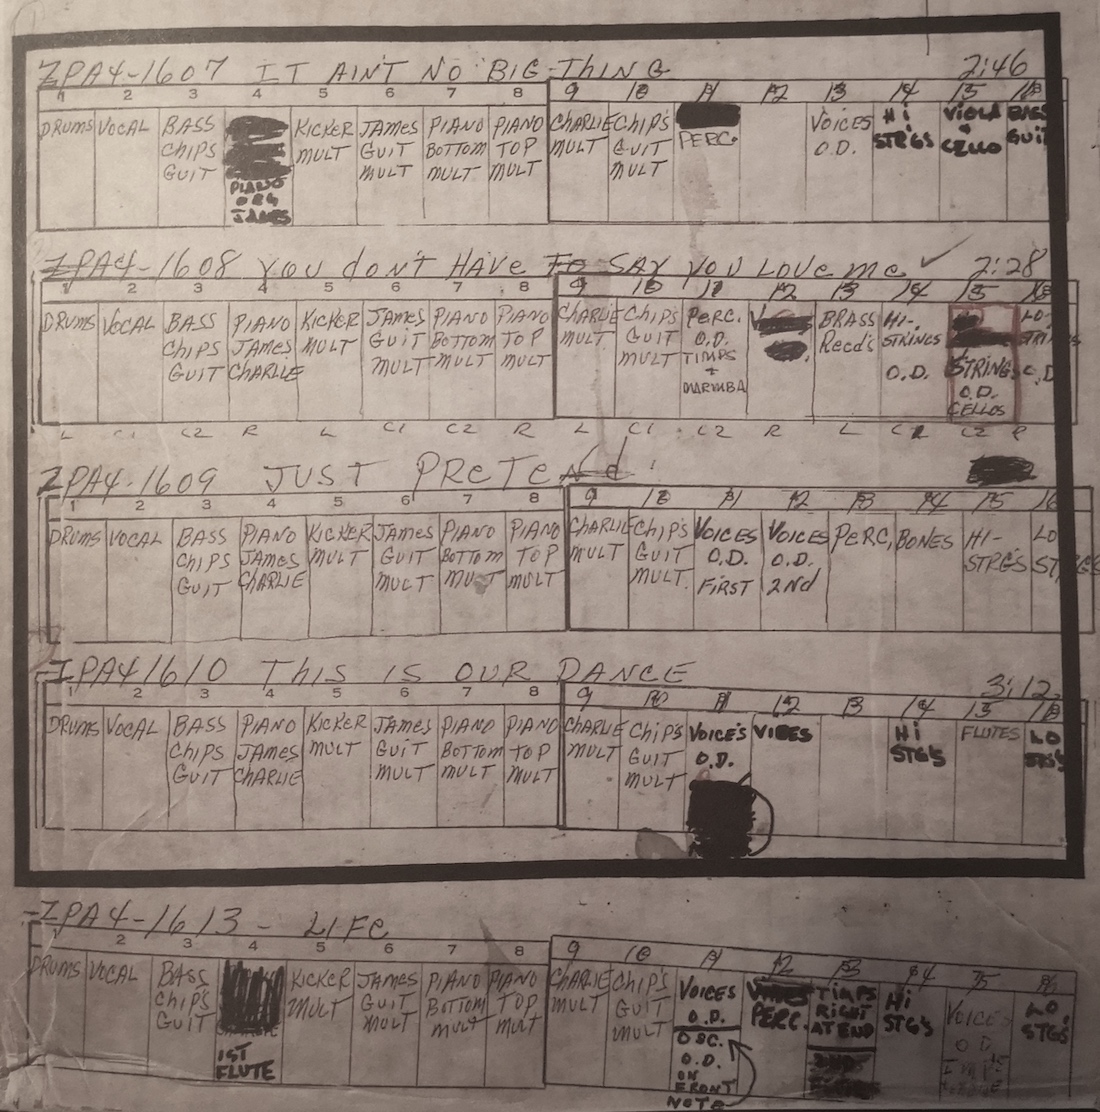 ZPA4-1607 IT AIN'T NO BIG THING 2:46
1 2 3 4 5 6 7 8 9 10 11 12 13 14 15 16
DRUMS VOCAL BASS KICKER JAMES PIANO PIANO CHARLIE CHIP'S VOICES Hi VIOLA BASS
CHIPS MULT GUIT BOTTOM TOP MULT GUIT PERC. O.D. STRGS + GUIT
GUIT MULT MULT MULT MULT CELLO
PIANO
ORG
JAMES
ZPA4-1608 YOU DON'T HAVE TO SAY YOU LOVE ME ✓ 2:28
1 2 3 4 5 6 7 8 9 10 11 12 13 14 15 16
DRUMS VOCAL BASS PIANO KICKER JAMES PIANO PIANO CHARLIE CHIPS PERC. BRASS Hi- LO-
CHIPS JAMES MULT GUIT BOTTOM TOP MULT. GUIT O.D. Reed's STRINGS STRINGS
GUIT CHARLIE MULT MULT MULT MULT TIMPS O.D. STRINGS O.D.
+ O.D.
MARIMBA CELLOS
L C1 C2 R L C1 C2 R L C1 C2 R L C2 R
ZPA4-1609 JUST PRETEND
1 2 3 4 5 6 7 8 9 10 11 12 13 14 15 16
DRUMS VOCAL BASS PIANO KICKER JAMES PIANO PIANO CHARLIE CHIP'S VOICES VOICES PERC, BONES HI- LO
CHIPS JAMES MULT GUIT BOTTOM TOP MULT GUIT O.D. O.D. STRG'S STRG'S
GUIT CHARLIE MULT MULT MULT MULT. FIRST 2Nd
ZPA41610 THIS IS OUR DANCE 3:12
1 2 3 4 5 6 7 8 9 10 11 12 13 14 15 16
DRUMS VOCAL BASS PIANO KICKER JAMES PIANO PIANO CHARLIE CHIP'S VOICE'S VIBES Hi FLUTES LO
CHIPS JAMES MULT GUIT BOTTOM TOP MULT GUIT O.D. STG'S STG'S
GUIT CHARLIE MULT MULT MULT MULT
ZPA4-1613 - LIFE
1 2 3 4 5 6 7 8 9 10 11 12 13 14 15 16
DRUMS VOCAL BASS KICKER JAMES PIANO PIANO CHARLIE CHIP'S VOICES TIMPS Hi VOICES LO.
CHIP'S MULT GUIT BOTTOM TOP MULT GUIT O.D. PERC. RIGHT STG'S O.D. STGS
GUIT MULT MULT MULT MULT OSC. AT END
1ST O.D.
FLUTE ON
FRONT
NOTE